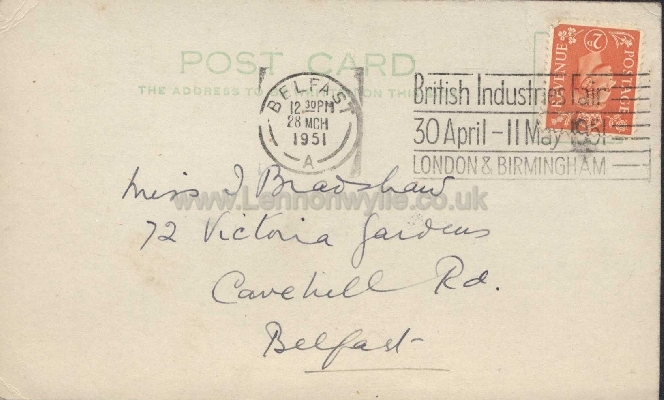 POST CARD
THE ADDRESS TO ON THIS
BELFAST
12 30PM
28 MCH
1951
A
British Industries Fair
30 April - 11 May 1951
LONDON & BIRMINGHAM
REVENUE
2D
POSTAGE
www.Lennonwylie.co.uk
Miss J Bradshaw
72 Victoria Gardens
Cavehill Rd.
Belfast